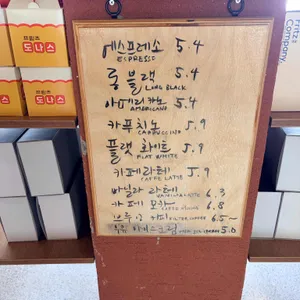 에스프레소 5.4
ESPRESSO
롱블랙 5.4
LONG BLACK
아메리카노 5.4
AMERICANO
카푸치노 5.9
CAPPUCCINO
플랫 화이트 5.9
FLAT WHITE
카페라떼 5.9
CAFFE LATTE
바닐라 라떼 6.3
VANILLA LATTE
카페 모카 6.8
CAFFE MOCHA
브루잉 커피 FILTER COFFEE 6.5~
아이스크림 5.0
프릳츠
도나스
도나스
Fritz
Company.